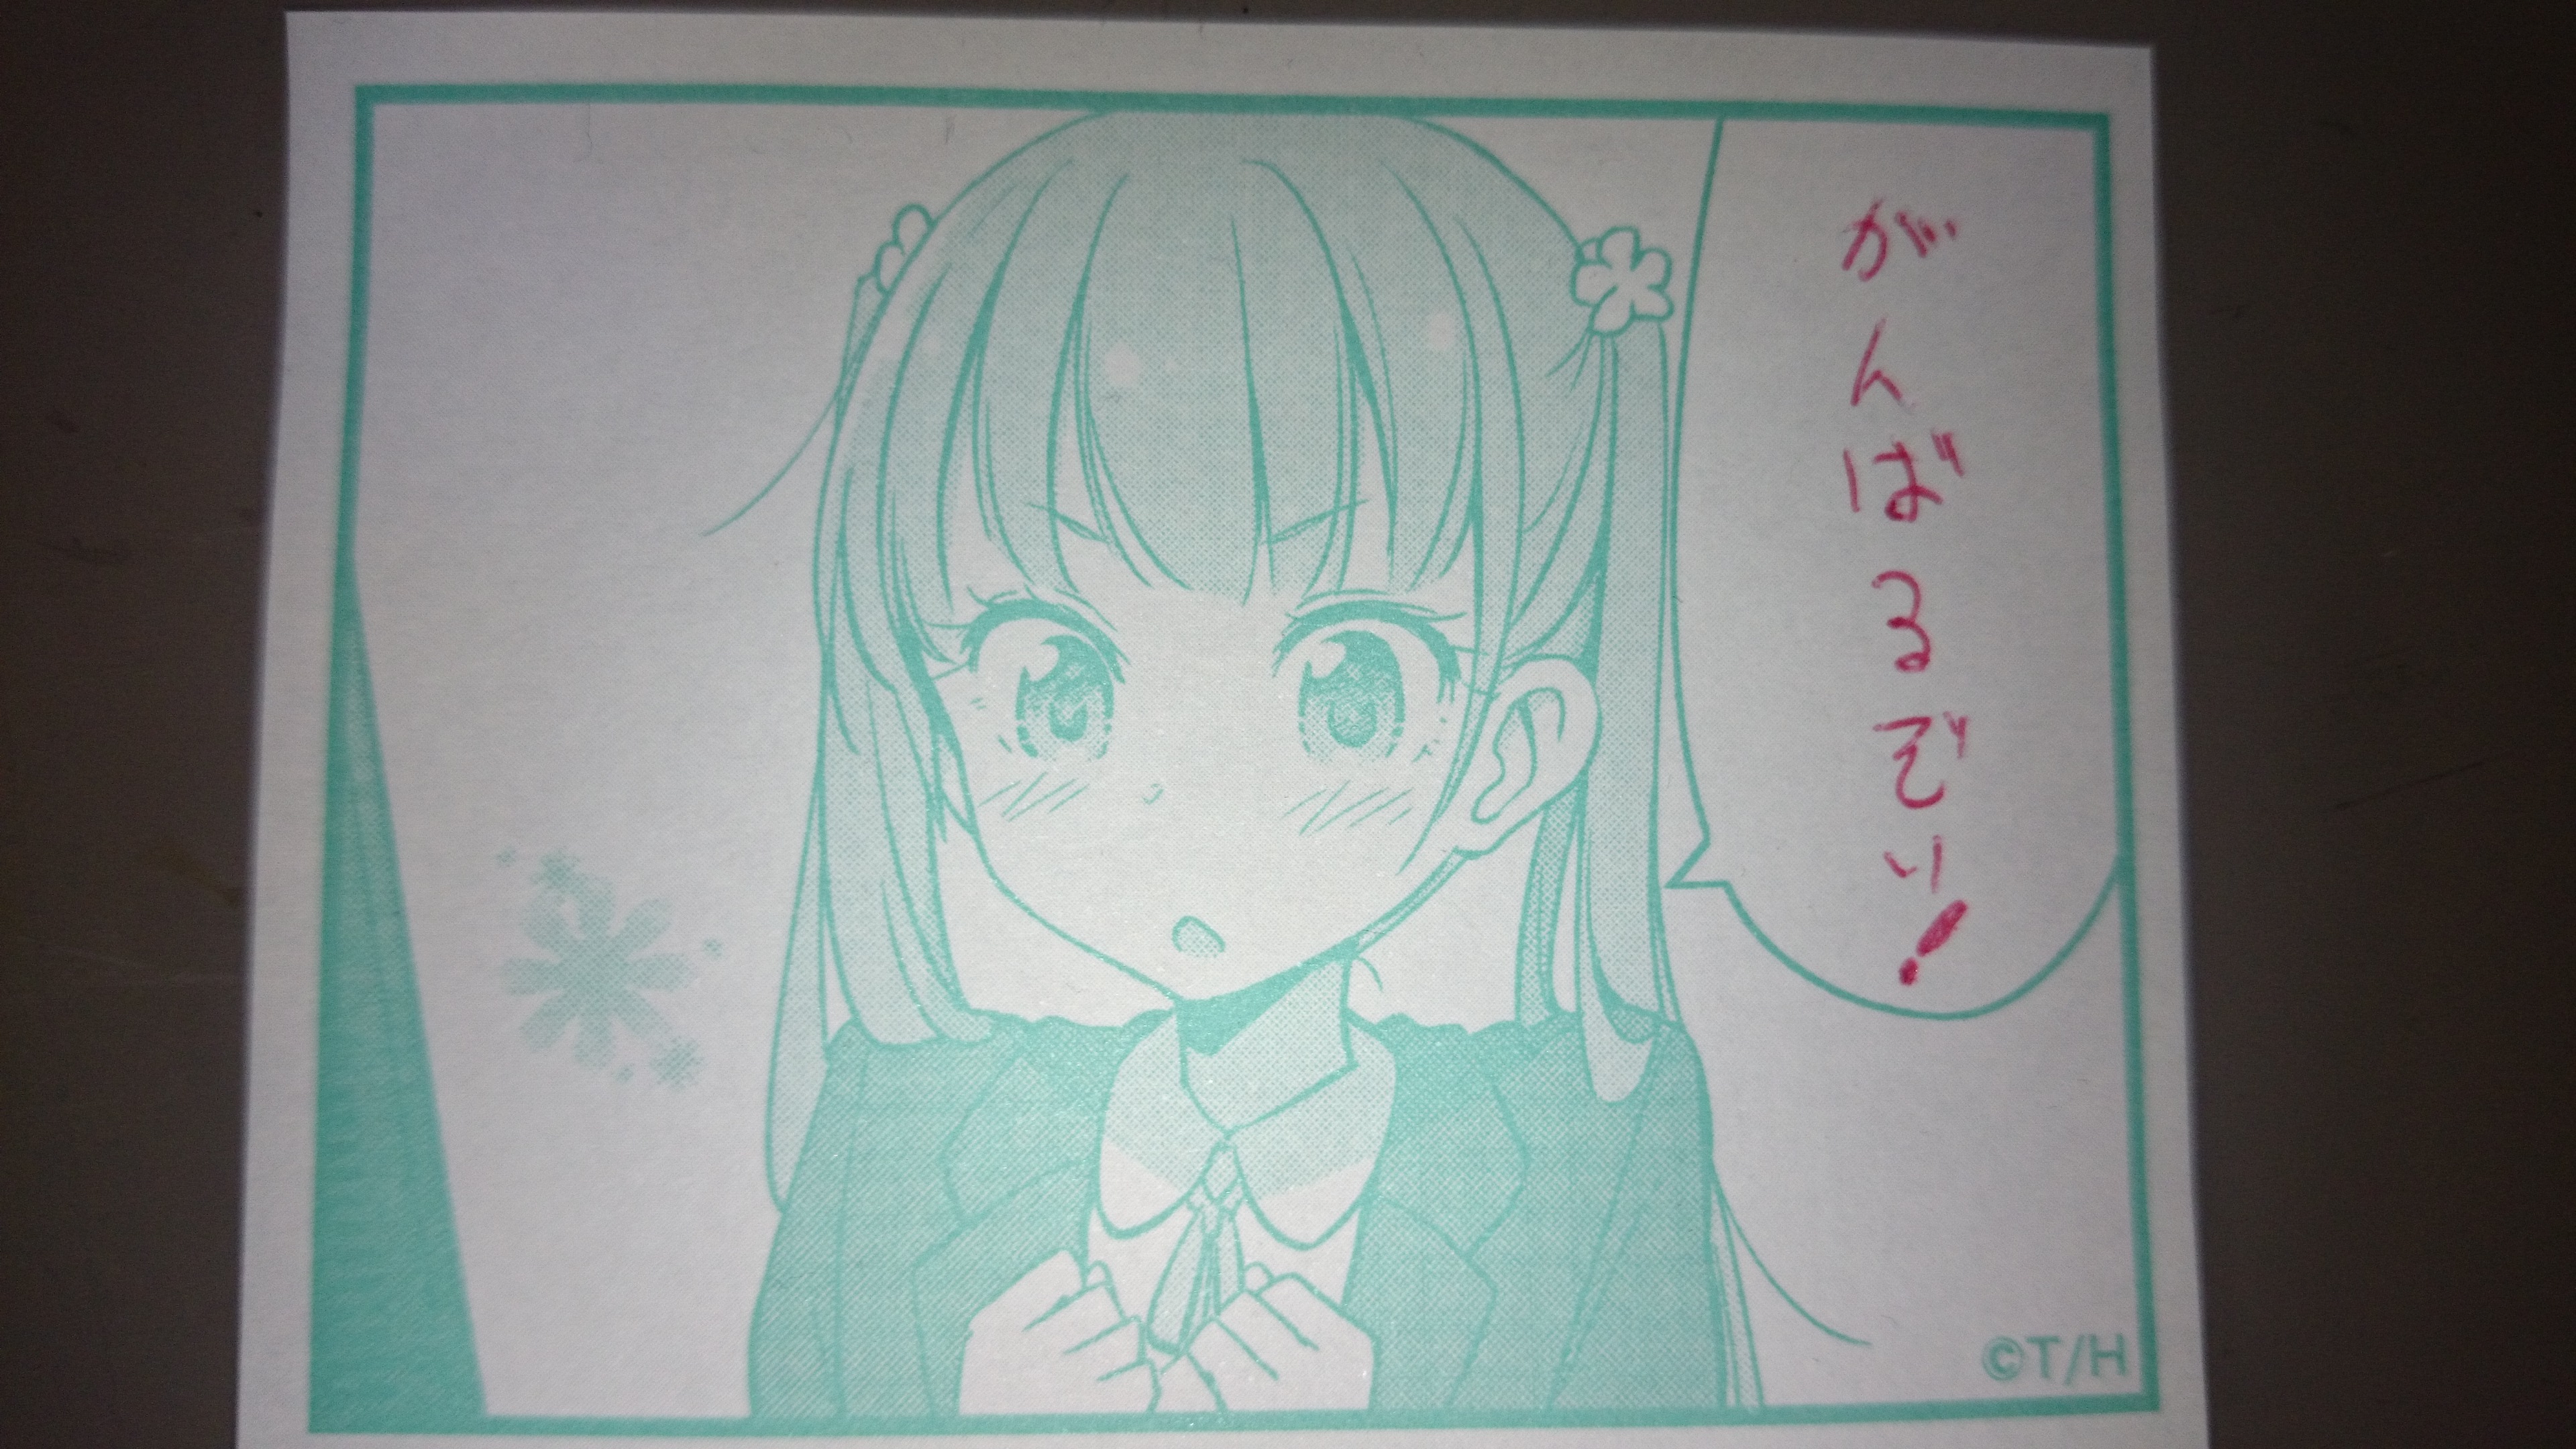 がんばるぞい!
©T/H